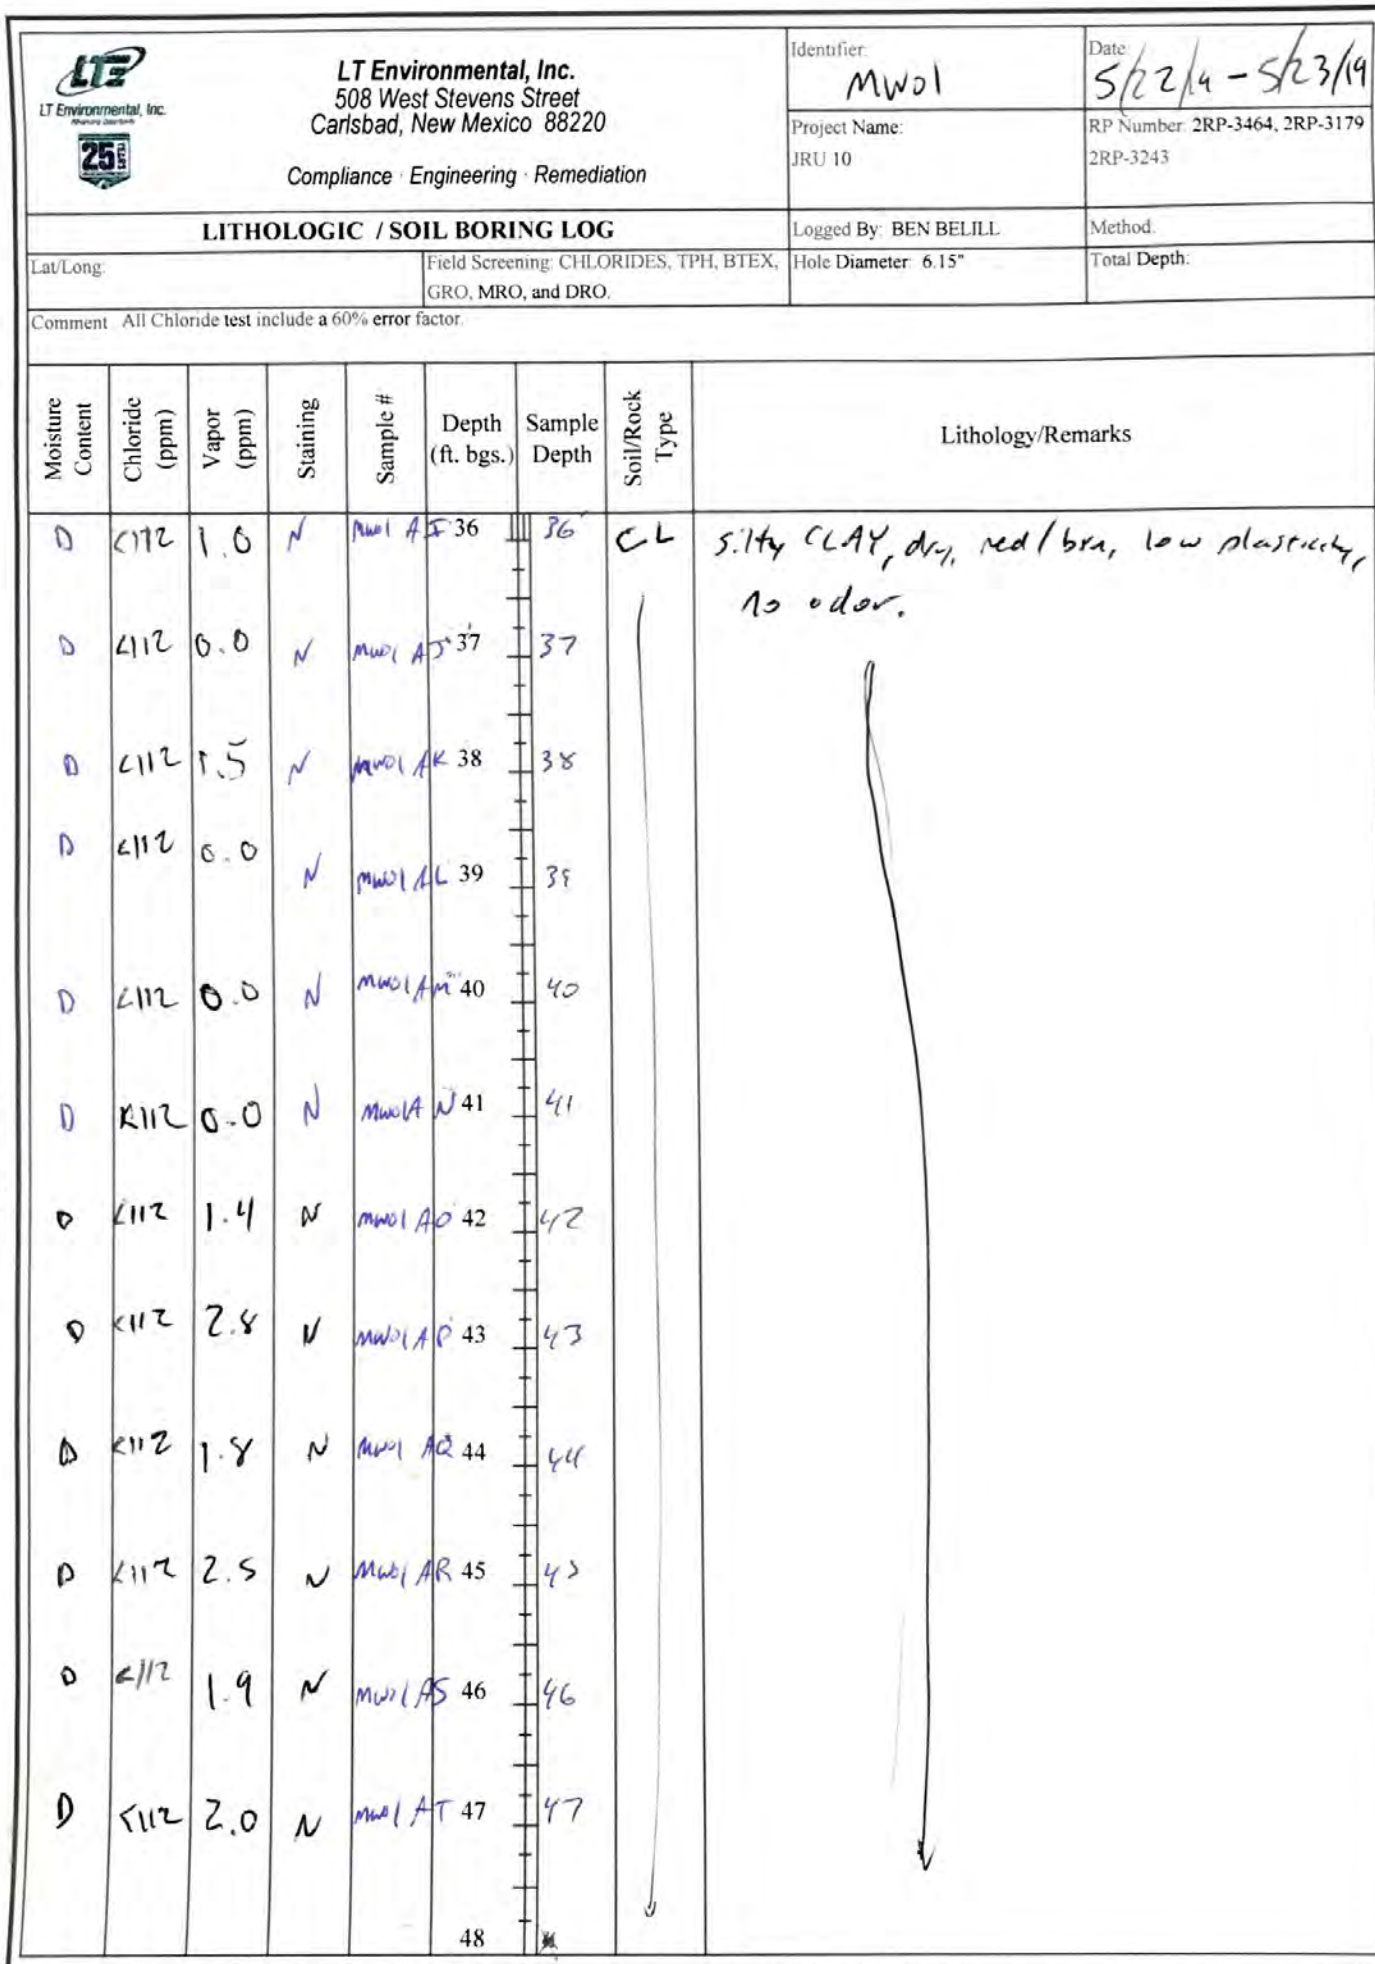 LTE
LT Environmental, Inc.
25 YEARS
LT Environmental, Inc.
508 West Stevens Street
Carlsbad, New Mexico 88220
Compliance · Engineering · Remediation
Identifier:
MW01
Date:
5/22/19 - 5/23/19
Project Name:
JRU 10
RP Number: 2RP-3464, 2RP-3179
2RP-3243
LITHOLOGIC / SOIL BORING LOG
Logged By: BEN BELILL
Method:
Lat/Long:
Field Screening: CHLORIDES, TPH, BTEX,
GRO, MRO, and DRO.
Hole Diameter: 6.15"
Total Depth:
Comment: All Chloride test include a 60% error factor.
Moisture Content
Chloride (ppm)
Vapor (ppm)
Staining
Sample #
Depth (ft. bgs.)
Sample Depth
Soil/Rock Type
Lithology/Remarks
D <112 1.0 N MW01 AI 36 36' CL silty CLAY, dry, red/brn, low plasticity,
no odor.
D <112 0.0 N MW01 AJ 37 37
D <112 1.5 N MW01 AK 38 38
D <112 0.0 N MW01 AL 39 39
D <112 0.0 N MW01 AM 40 40
D <112 0.0 N MW01A N 41 41
D <112 1.4 N MW01 AO 42 42
D <112 2.8 N MW01 AP 43 43
D <112 1.8 N MW01 AQ 44 44
D <112 2.5 N MW01 AR 45 45
D <112 1.9 N MW01 AS 46 46
D <112 2.0 N MW01 AT 47 47
48